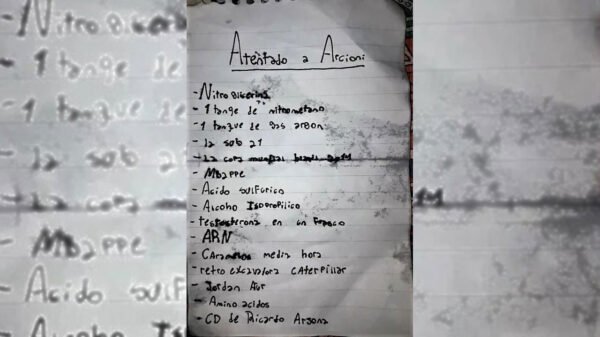 Atentado a Arcioni
- Nitroglicerina
- 1 tange de nitrometano
- 1 tanque de gas argon
- la sub 21
- La copa mundial
- Mbappe
- Acido sulfurico
- Alcoho Isopropilico
- testosterona en un frasco
- ARN
- Caramelos media hora
- retro excavadora caterpillar
- Jordan Air
- Amino acidos
- CD de Ricardo Arjona